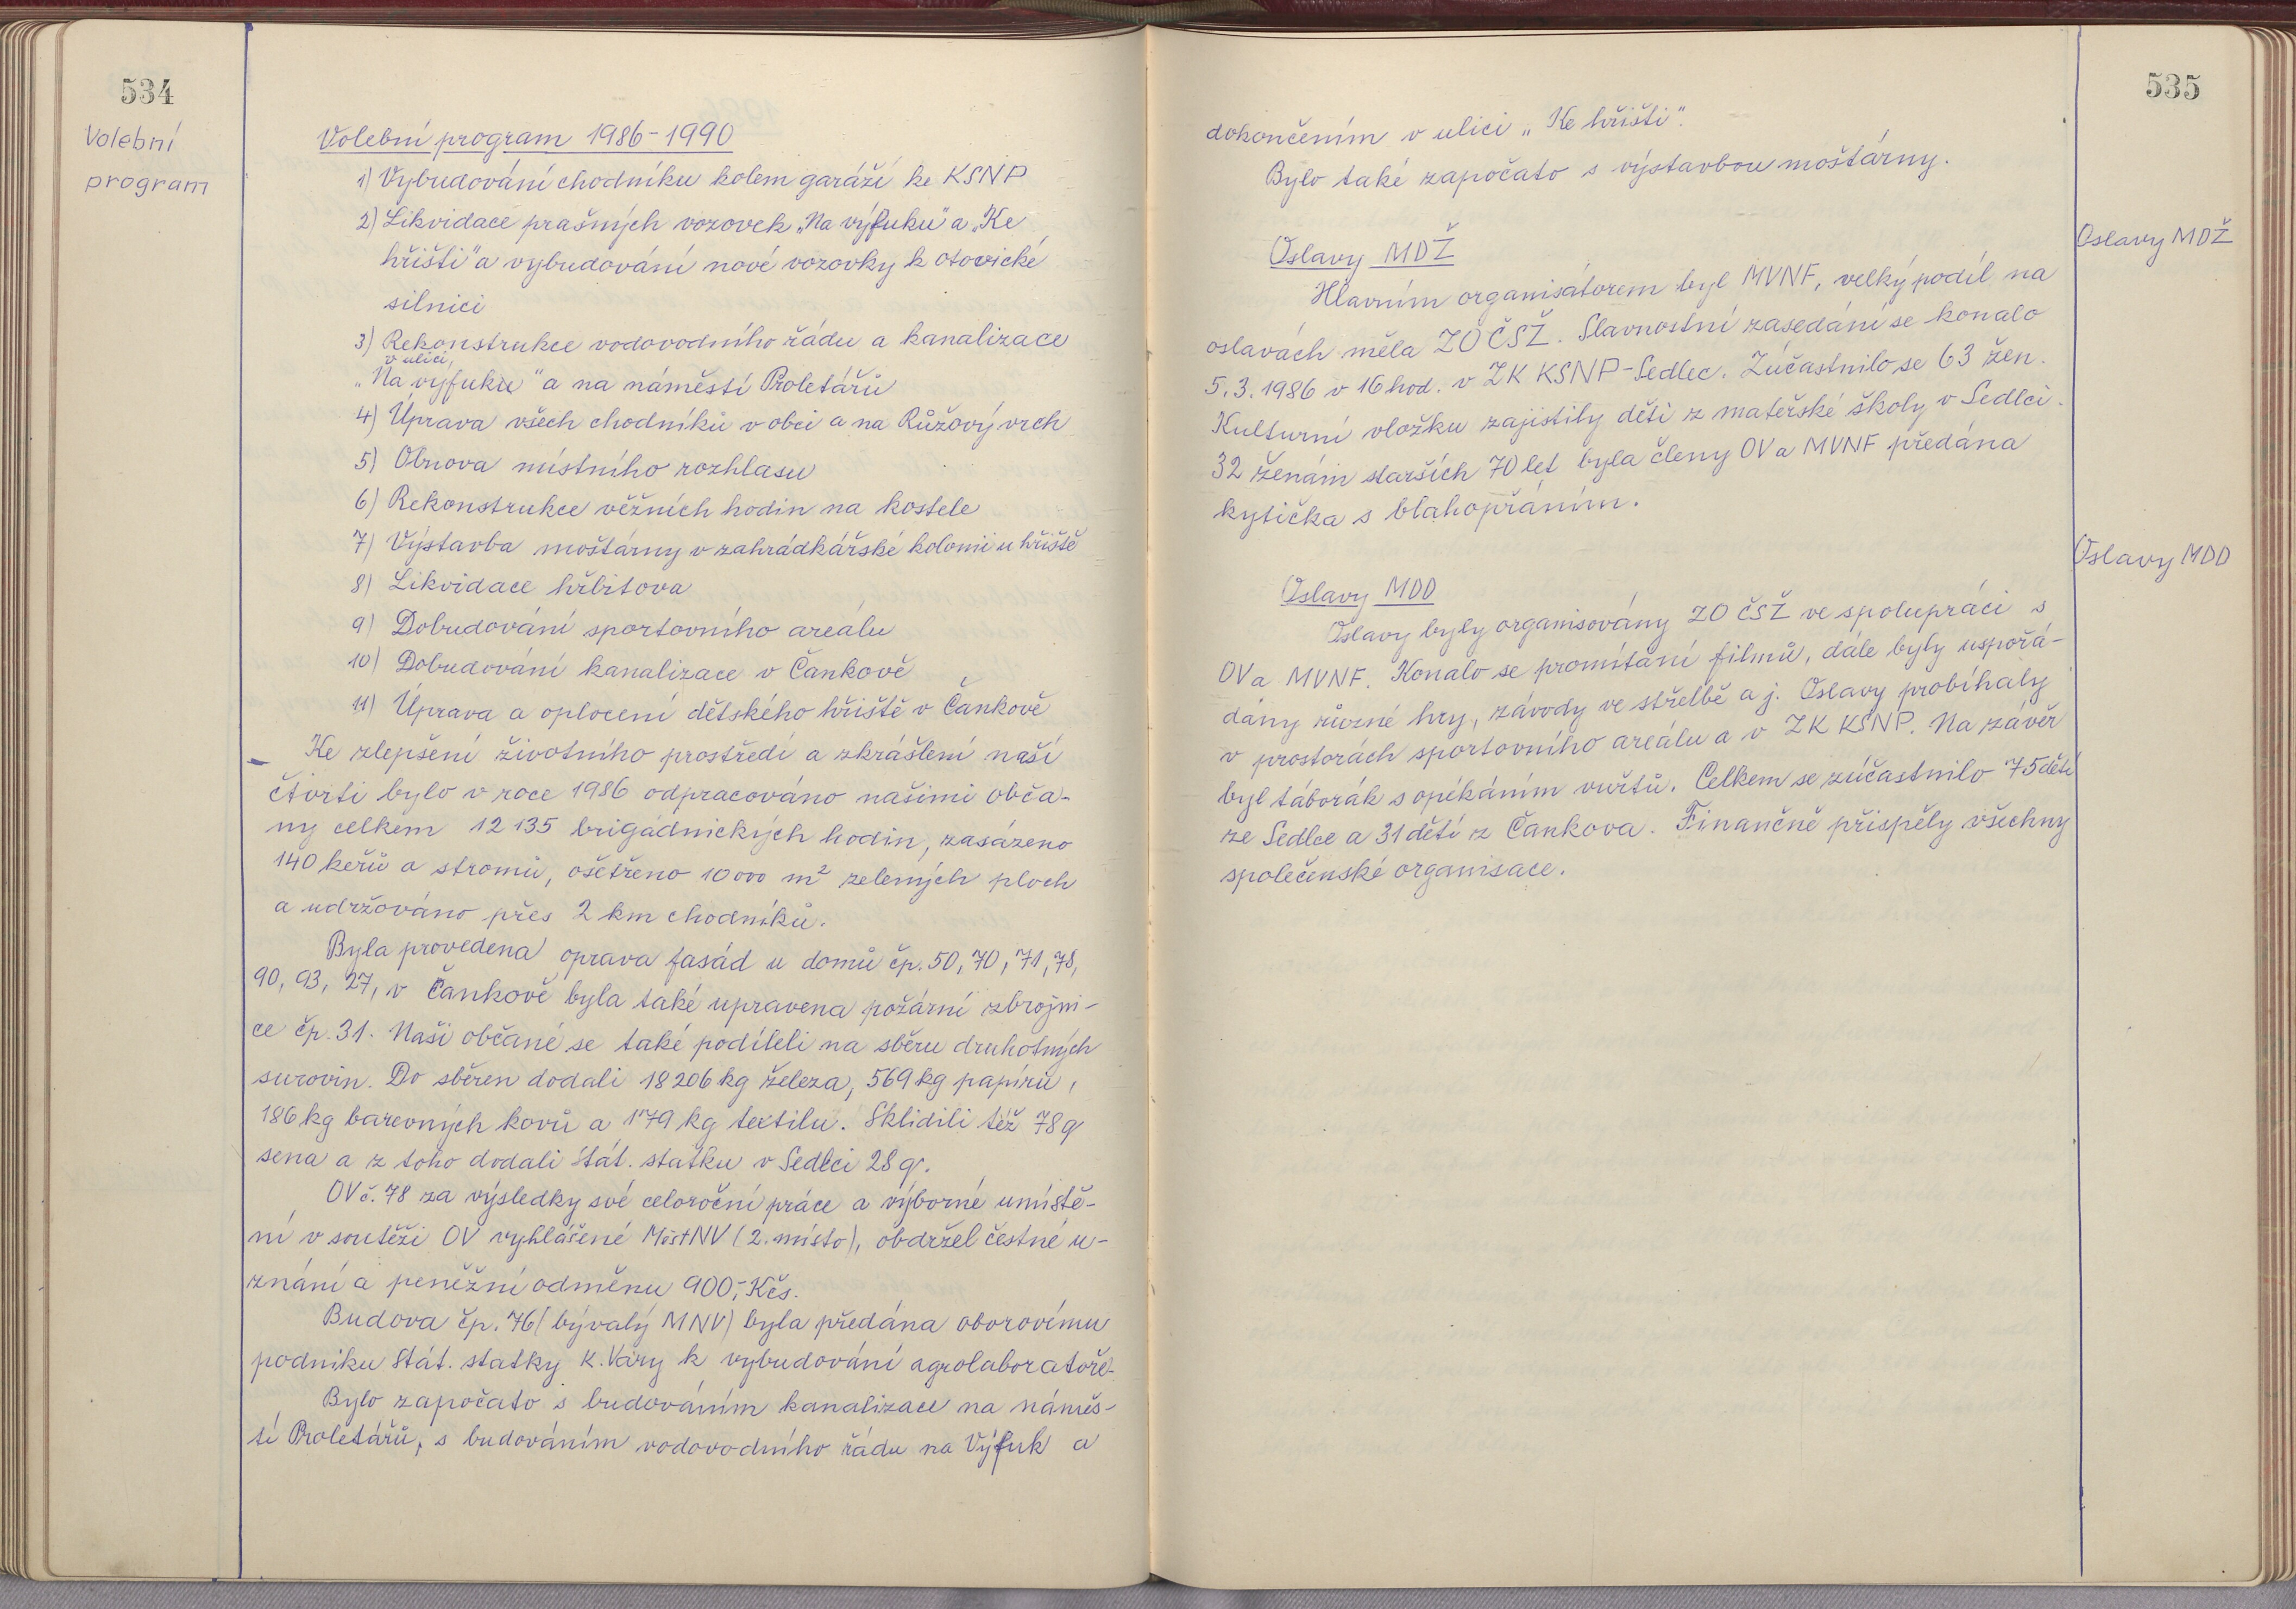 534
Volební
program
Volební program 1986-1990
1) Vybudování chodníku kolem garáží ke KSNP
2) Likvidace prašných vozovek „Na výfuku" a „Ke
hřišti" a vybudování nové vozovky k otovické
silnici
3) Rekonstrukce vodovodního řádu a kanalizace
v ulici
„Na výfuku" a na náměstí Proletářů
4) Úprava všech chodníků v obci a na Růžový vrch
5) Obnova místního rozhlasu
6) Rekonstrukce věžních hodin na kostele
7) Výstavba moštárny v zahrádkářské kolonii u hřiště
8) Likvidace hřbitova
9) Dobudování sportovního areálu
10) Dobudování kanalizace v Čankově
11) Úprava a oplocení dětského hřiště v Čankově
Ke zlepšení životního prostředí a zkrášlení naší
čtvrti bylo v roce 1986 odpracováno našimi obča-
ny celkem 12 135 brigádnických hodin, zasázeno
140 keřů a stromů, ošetřeno 10 000 m² zelených ploch
a udržováno přes 2 km chodníků.
Byla provedena oprava fasád u domů čp. 50, 70, 71, 78,
90, 93, 27, v Čankově byla také upravena požární zbrojni-
ce čp. 31. Naši občané se také podíleli na sběru druhotných
surovin. Do sběren dodali 18 206 kg železa, 569 kg papíru,
186 kg barevných kovů a 179 kg textilu. Sklidili též 78 q
sena a z toho dodali Stát. statku v Sedlci 28 q.
OV č. 78 za výsledky své celoroční práce a výborné umístě-
ní v soutěži OV vyhlášené MěstNV (2. místo), obdržel čestné u-
znání a peněžní odměnu 900,- Kčs.
Budova čp. 76 (bývalý MNV) byla předána oborovému
podniku Stát. statky K. Vary k vybudování agrolaboratoře.
Bylo započato s budováním kanalizace na náměs-
tí Proletářů, s budováním vodovodního řádu na Výfuk a
535
dokončením v ulici „Ke hřišti".
Bylo také započato s výstavbou moštárny.
Oslavy MDŽ
Oslavy MDŽ
Hlavním organisátorem byl MVNF, velký podíl na
oslavách měla ZO ČSŽ. Slavnostní zasedání se konalo
5. 3. 1986 v 16 hod. v ZK KSNP-Sedlec. Zúčastnilo se 63 žen.
Kulturní vložku zajistily děti z mateřské školy v Sedlci.
32 ženám starších 70 let byla členy OV a MVNF předána
kytička s blahopřáním.
Oslavy MDD
Oslavy MDD
Oslavy byly organisovány ZO ČSŽ ve spolupráci s
OV a MVNF. Konalo se promítání filmů, dále byly uspořá-
dány různé hry, závody ve střelbě a j. Oslavy probíhaly
v prostorách sportovního areálu a v ZK KSNP. Na závěr
byl táborák s opékáním vuřtů. Celkem se zúčastnilo 75 dětí
ze Sedlce a 31 dětí z Čankova. Finančně přispěly všechny
společenské organisace.